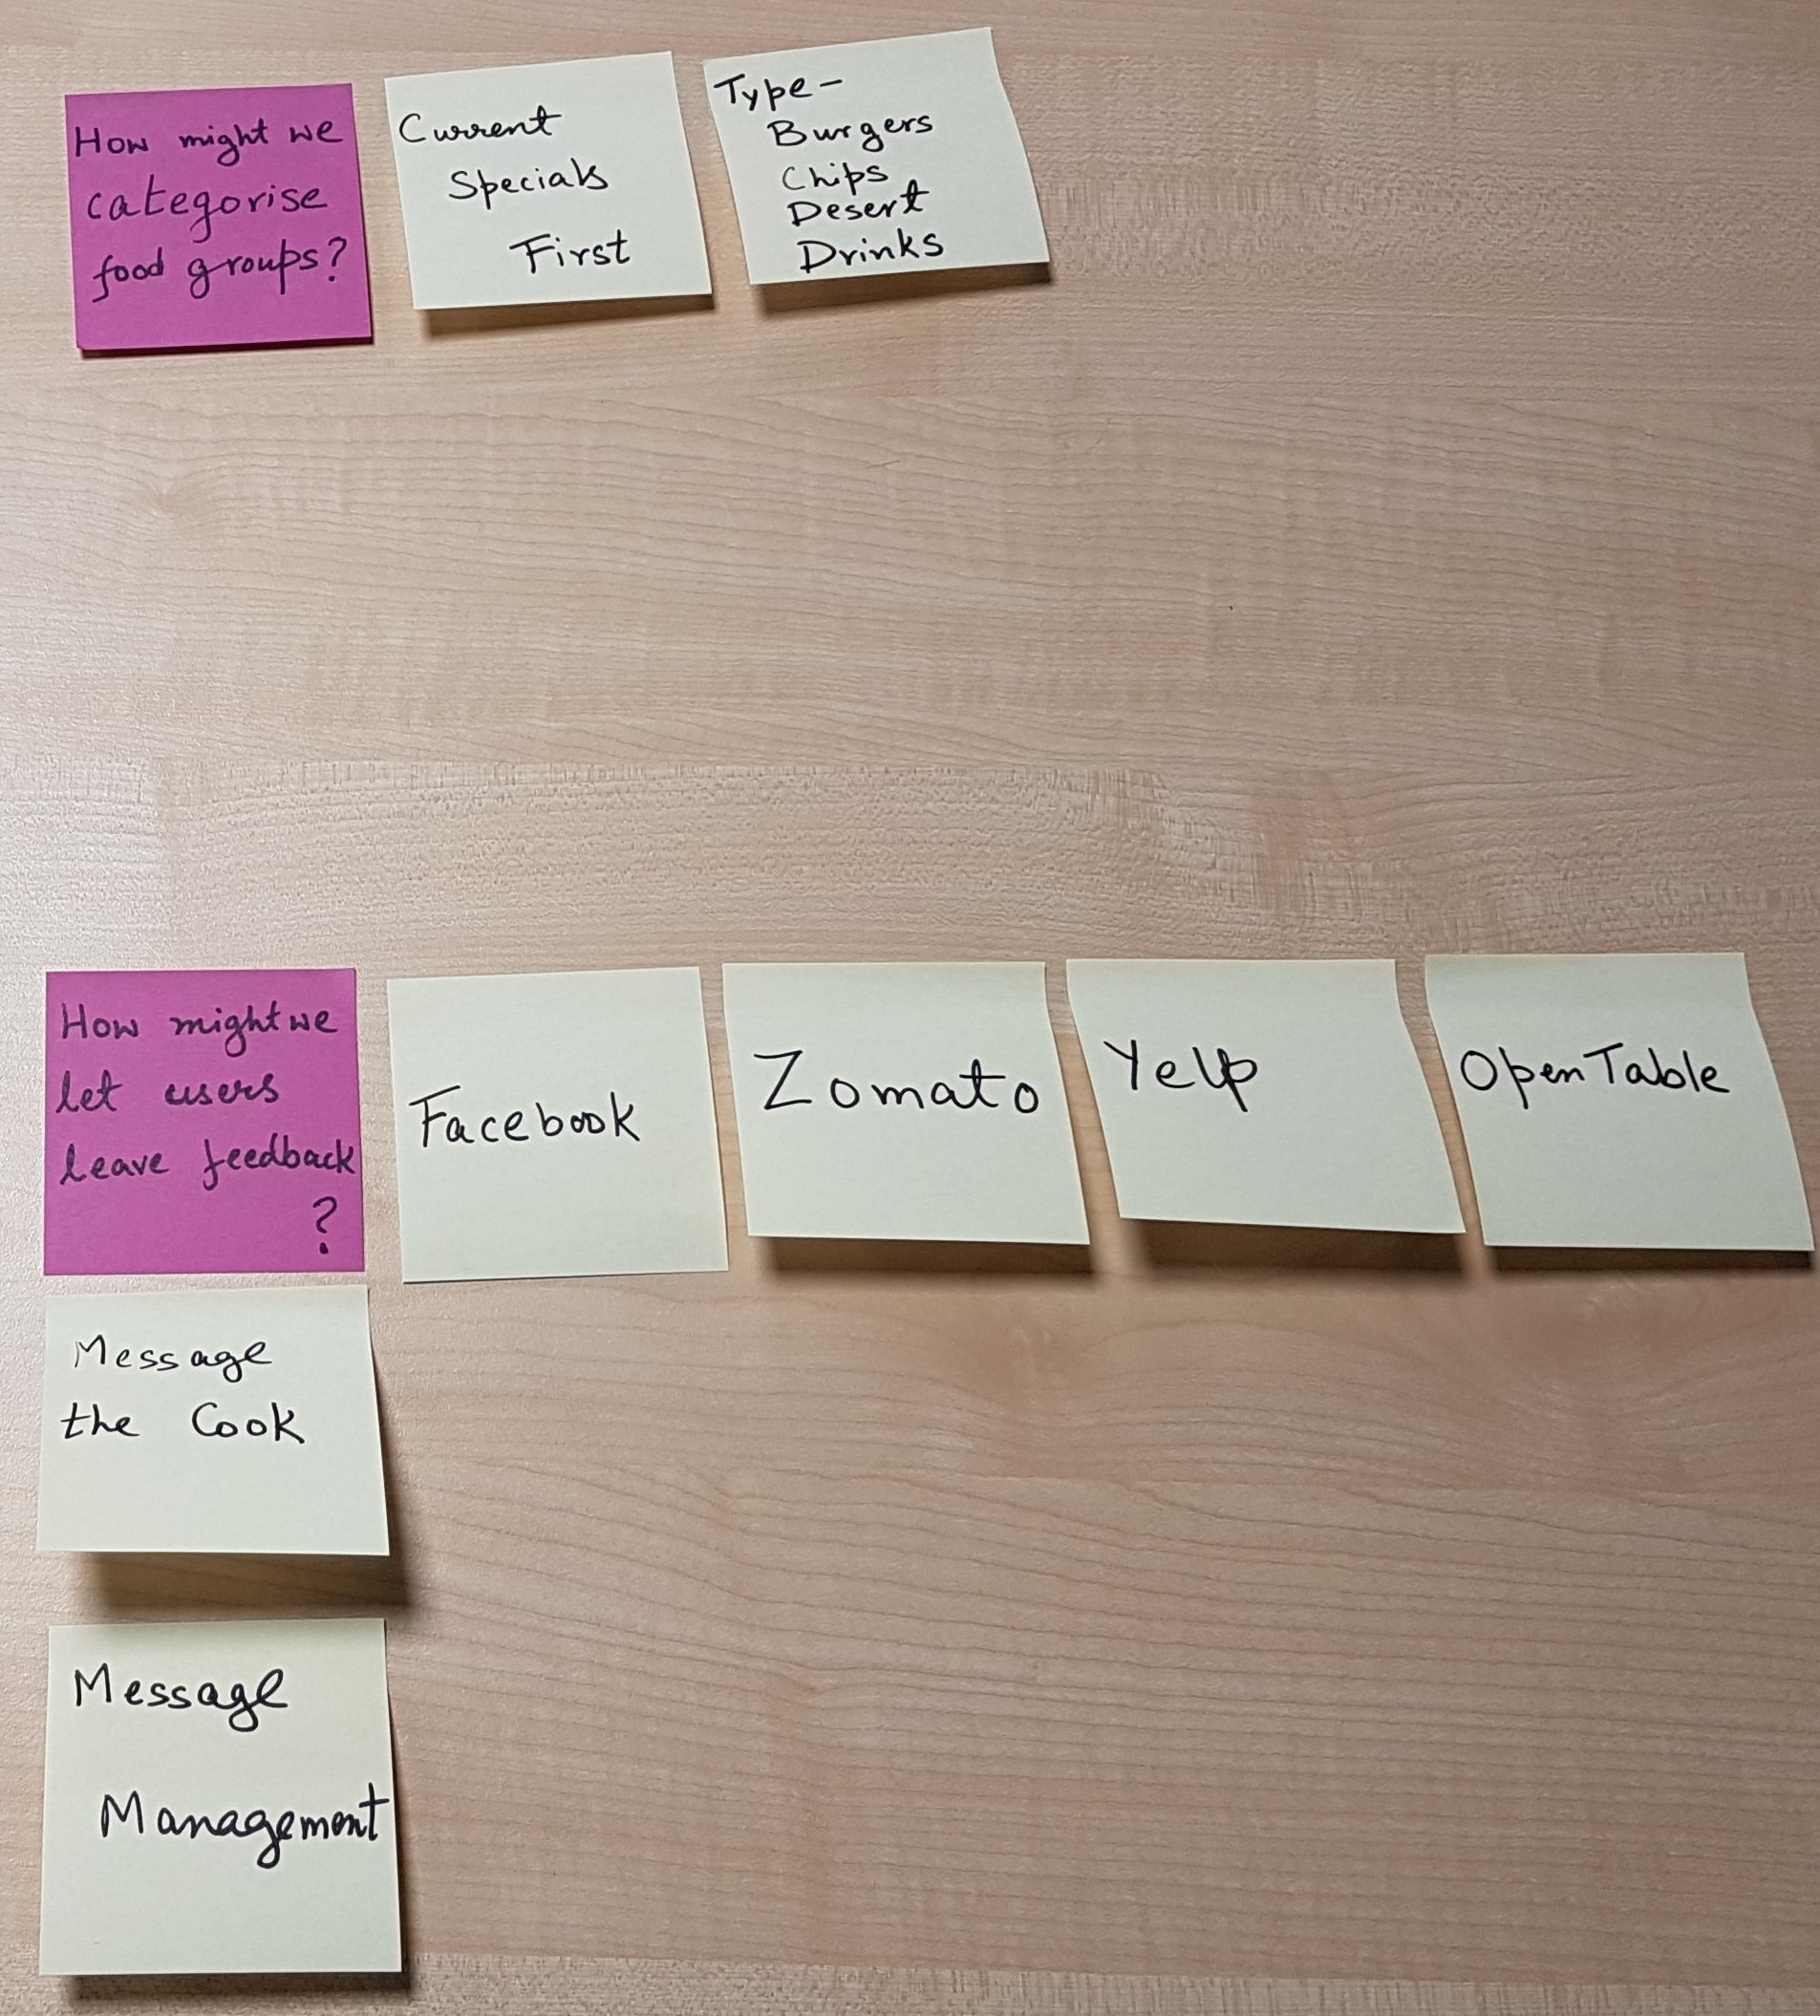 How might we
categorise
food groups?
Current
Specials
First
Type-
Burgers
Chips
Desert
Drinks
How might we
let users
leave feedback
?
Facebook
Zomato
Yelp
OpenTable
Message
the Cook
Message
Management